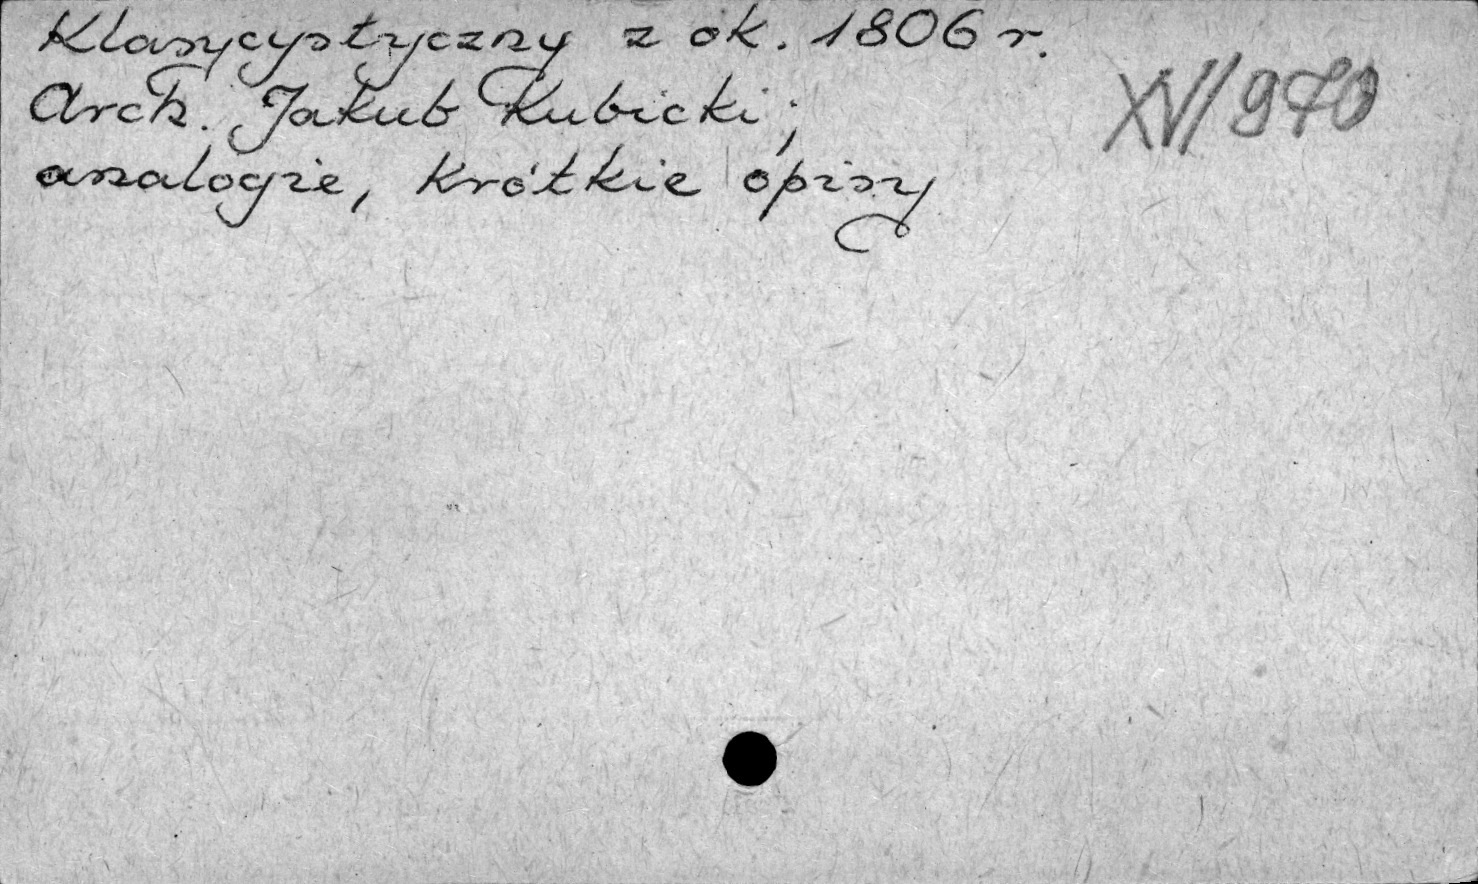 Klasycystyczny z ok. 1806 r.
Arch. Jakub Kubicki;
analogie, krótkie opisy
XV/970